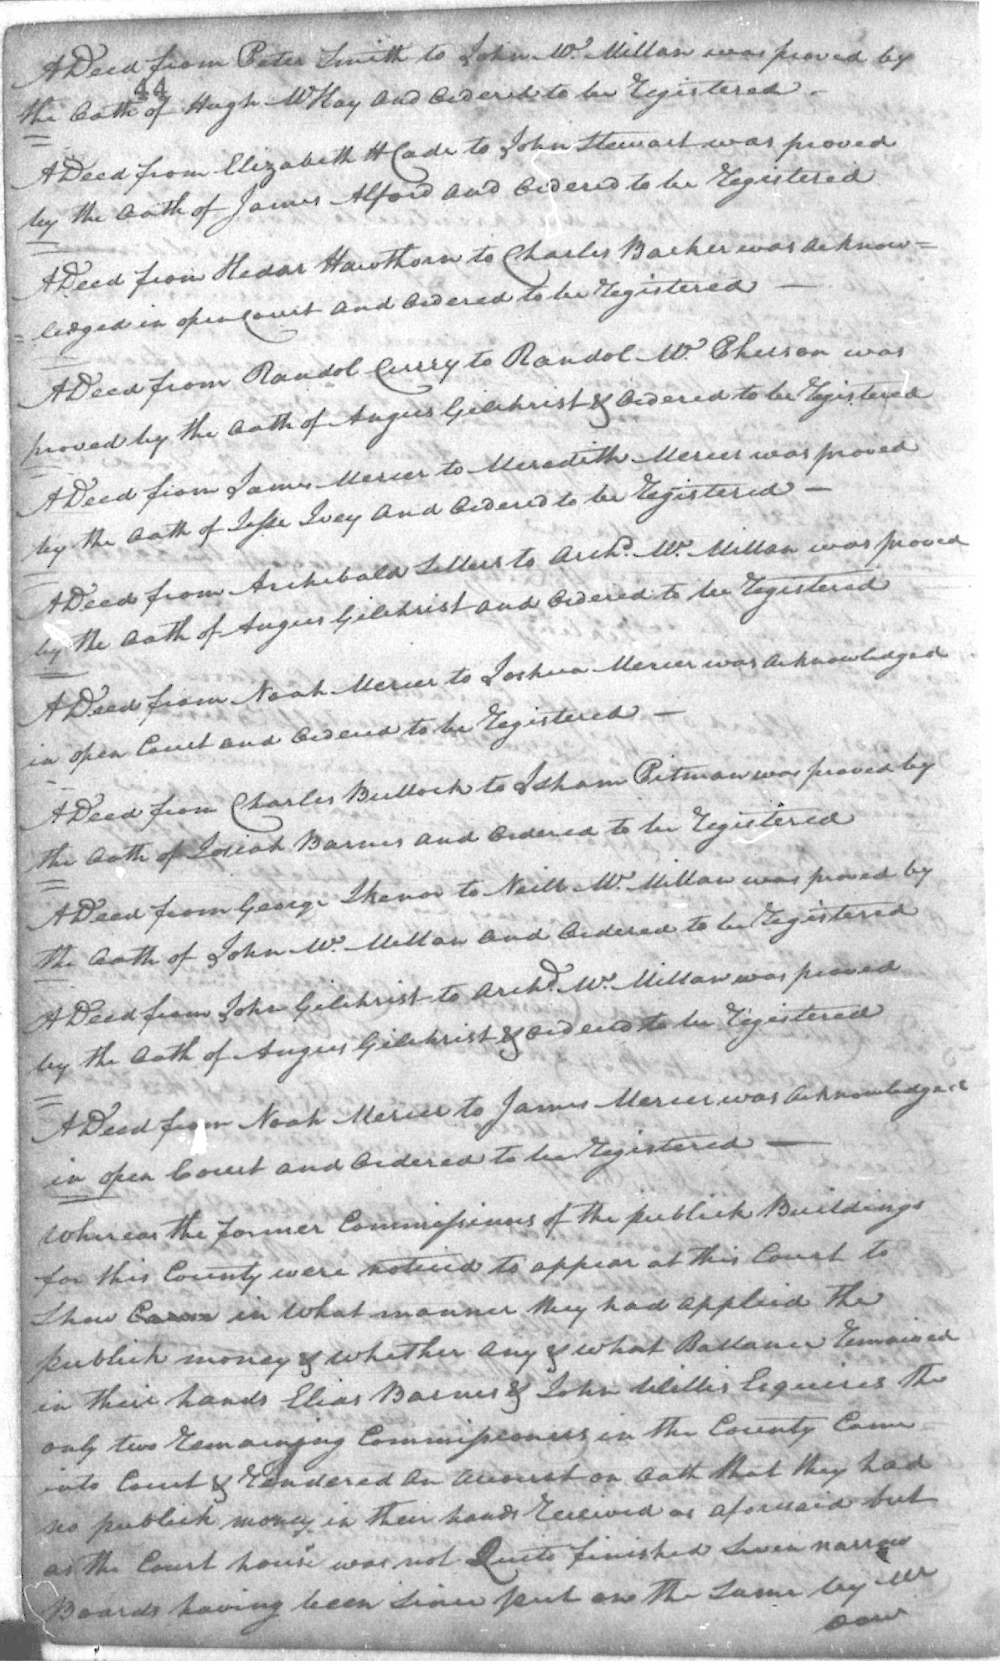 A Deed from Peter Smith to John Mc. Millan was proved by
44
the Oath of Hugh McKay and Ordered to be Registered -
A Deed from Elizabeth H Cade to John Stewart was proved
by the Oath of James Alford and Ordered to be Registered
A Deed from Hedar Hawthorn to Charles Barker was acknow=
=ledged in open Court and Ordered to be Registered —
A Deed from Randol Curry to Randol Mc. Pherson was
proved by the Oath of Angus Gilchrist & Ordered to be Registered
A Deed from James Mercer to Meredith Mercer was proved
by the Oath of Jesse Ivey and Ordered to be Registered —
A Deed from Archibald Sellers to Archd. Mc. Millan was proved
by the Oath of Angus Gilchrist and Ordered to be Registered
A Deed from Noah Mercer to Joshua Mercer was acknowledged
in open Court and Ordered to be Registered —
A Deed from Charles Bullock to Isham Pitman was proved by
the Oath of Josiah Barnes and Ordered to be Registered
A Deed from George Ikenor to Neill Mc. Millan was proved by
the Oath of John Mc. Millan and Ordered to be Registered
A Deed from John Gilchrist to Archd. Mc. Millan was proved
by the Oath of Angus Gilchrist & Ordered to be Registered
A Deed from Noah Mercer to James Mercer was acknowledged
in open Court and Ordered to be Registered —
Whereas the former Commissioners of the publick Buildings
for this County were noticed to appear at this Court to
Shew Cause in what manner they had applied the
publick money & whether any & what Ballance Remained
in their hands Elias Barnes & John Willis Esquires the
only two Remaining Commissioners in the County Came
into Court & Rendered an account on Oath that they had
no publick money in their hands Received as aforesaid but
as the Court house was not Quite finished Seven narrow
Boards having been Since put on the Same by Mr